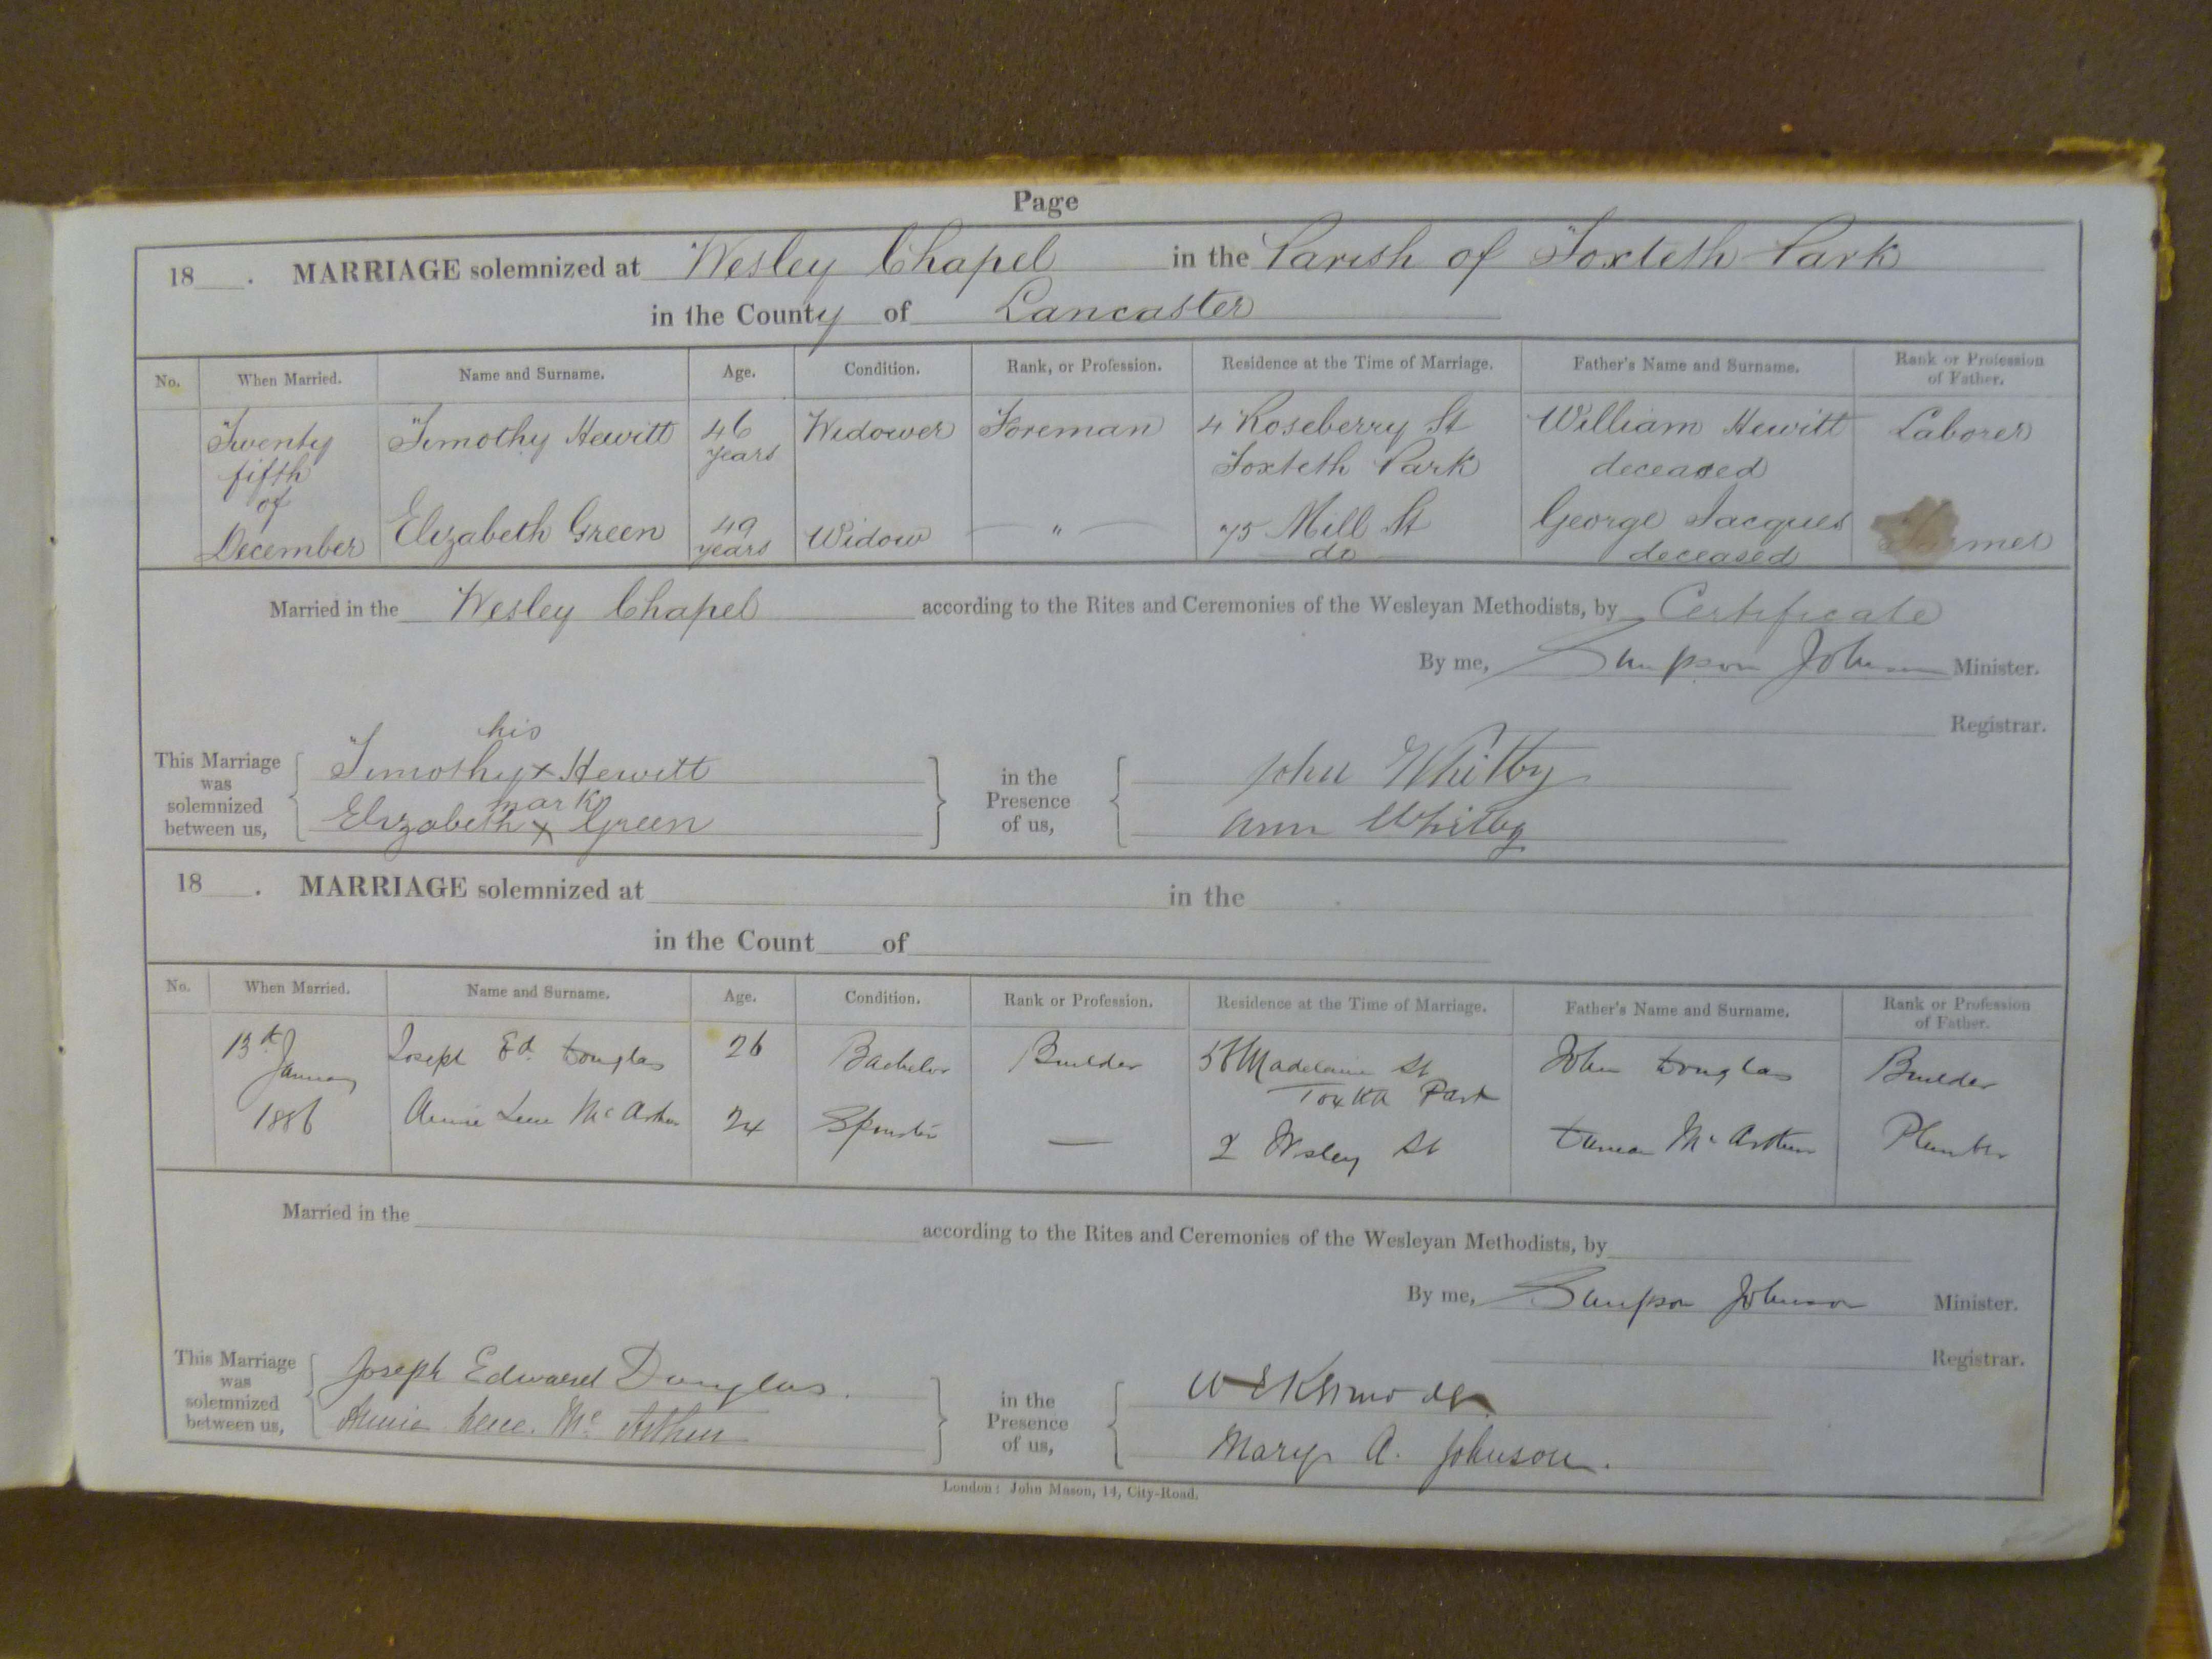 Page
18 . MARRIAGE solemnized at Wesley Chapel in the Parish of Toxteth Park
in the County of Lancaster
No. When Married. Name and Surname. Age. Condition. Rank, or Profession. Residence at the Time of Marriage. Father's Name and Surname. Rank or Profession of Father.
Twenty fifth of December
Timothy Hewitt 46 years Widower Foreman 4 Roseberry St Toxteth Park William Hewitt deceased Laborer
Elizabeth Green 49 years Widow " 75 Mill St do George Jacques deceased
Married in the Wesley Chapel according to the Rites and Ceremonies of the Wesleyan Methodists, by Certificate
By me, Sampson Johnson Minister.
Registrar.
This Marriage was solemnized between us,
his
Timothy x Hewitt
mark
Elizabeth x Green
in the Presence of us,
John Whitby
Ann Whitby
18 . MARRIAGE solemnized at in the
in the Count of
No. When Married. Name and Surname. Age. Condition. Rank or Profession. Residence at the Time of Marriage. Father's Name and Surname. Rank or Profession of Father.
13th January 1886
Joseph Ed. Douglas 26 Bachelor Builder Madelaine St Toxteth Park John Douglas Builder
Annie McArthur 24 Spinster — 2 Wesley St Duncan McArthur Plumber
Married in the according to the Rites and Ceremonies of the Wesleyan Methodists, by
By me, Sampson Johnson Minister.
Registrar.
This Marriage was solemnized between us,
Joseph Edward Douglas.
Annie McArthur
in the Presence of us,
Mary A. Johnson.
London: John Mason, 14, City-Road.